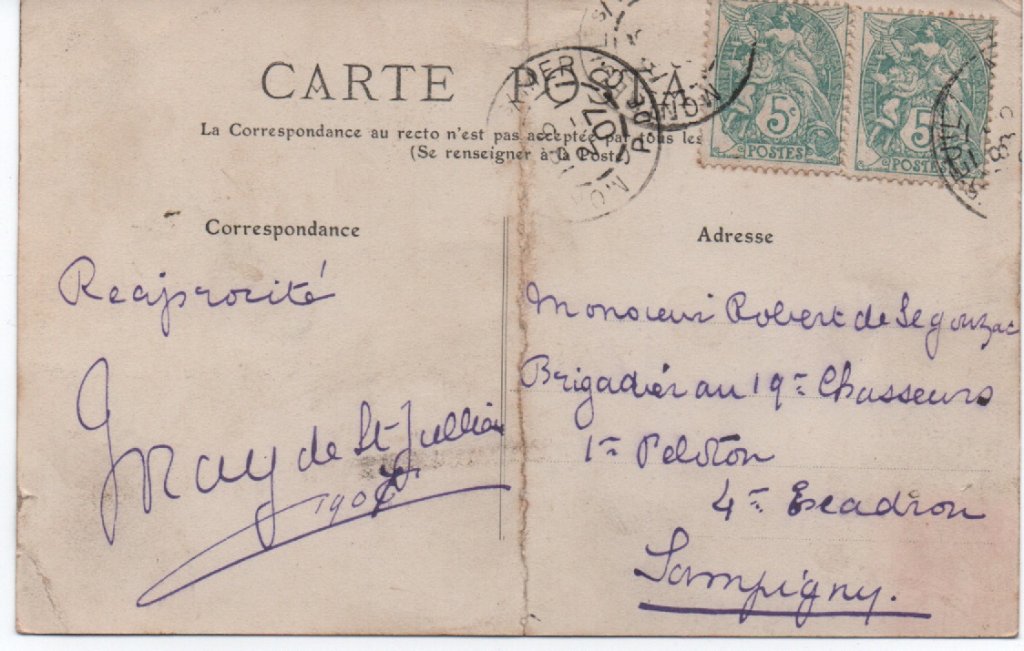 CARTE PO
La Correspondance au recto n'est pas acceptée par tous les
(Se renseigner à la Poste)
5c
POSTES
5
POSTES
Correspondance
Réciprocité
Ray de St Jullien
190
Adresse
Monsieur Robert de Segonzac
Brigadier au 19e Chasseurs
1er Peloton
4e Escadron
Sampigny.